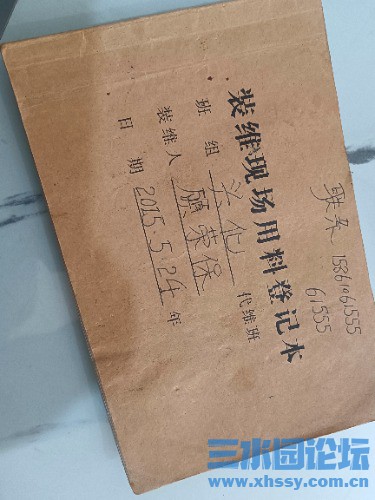 联系 15861061555
61555
装维现场用料登记本
班 组 兴化 代维班
装维人 顾荣保
日 期 2015.5.24 年
三水园论坛
www.xhssy.com.cn